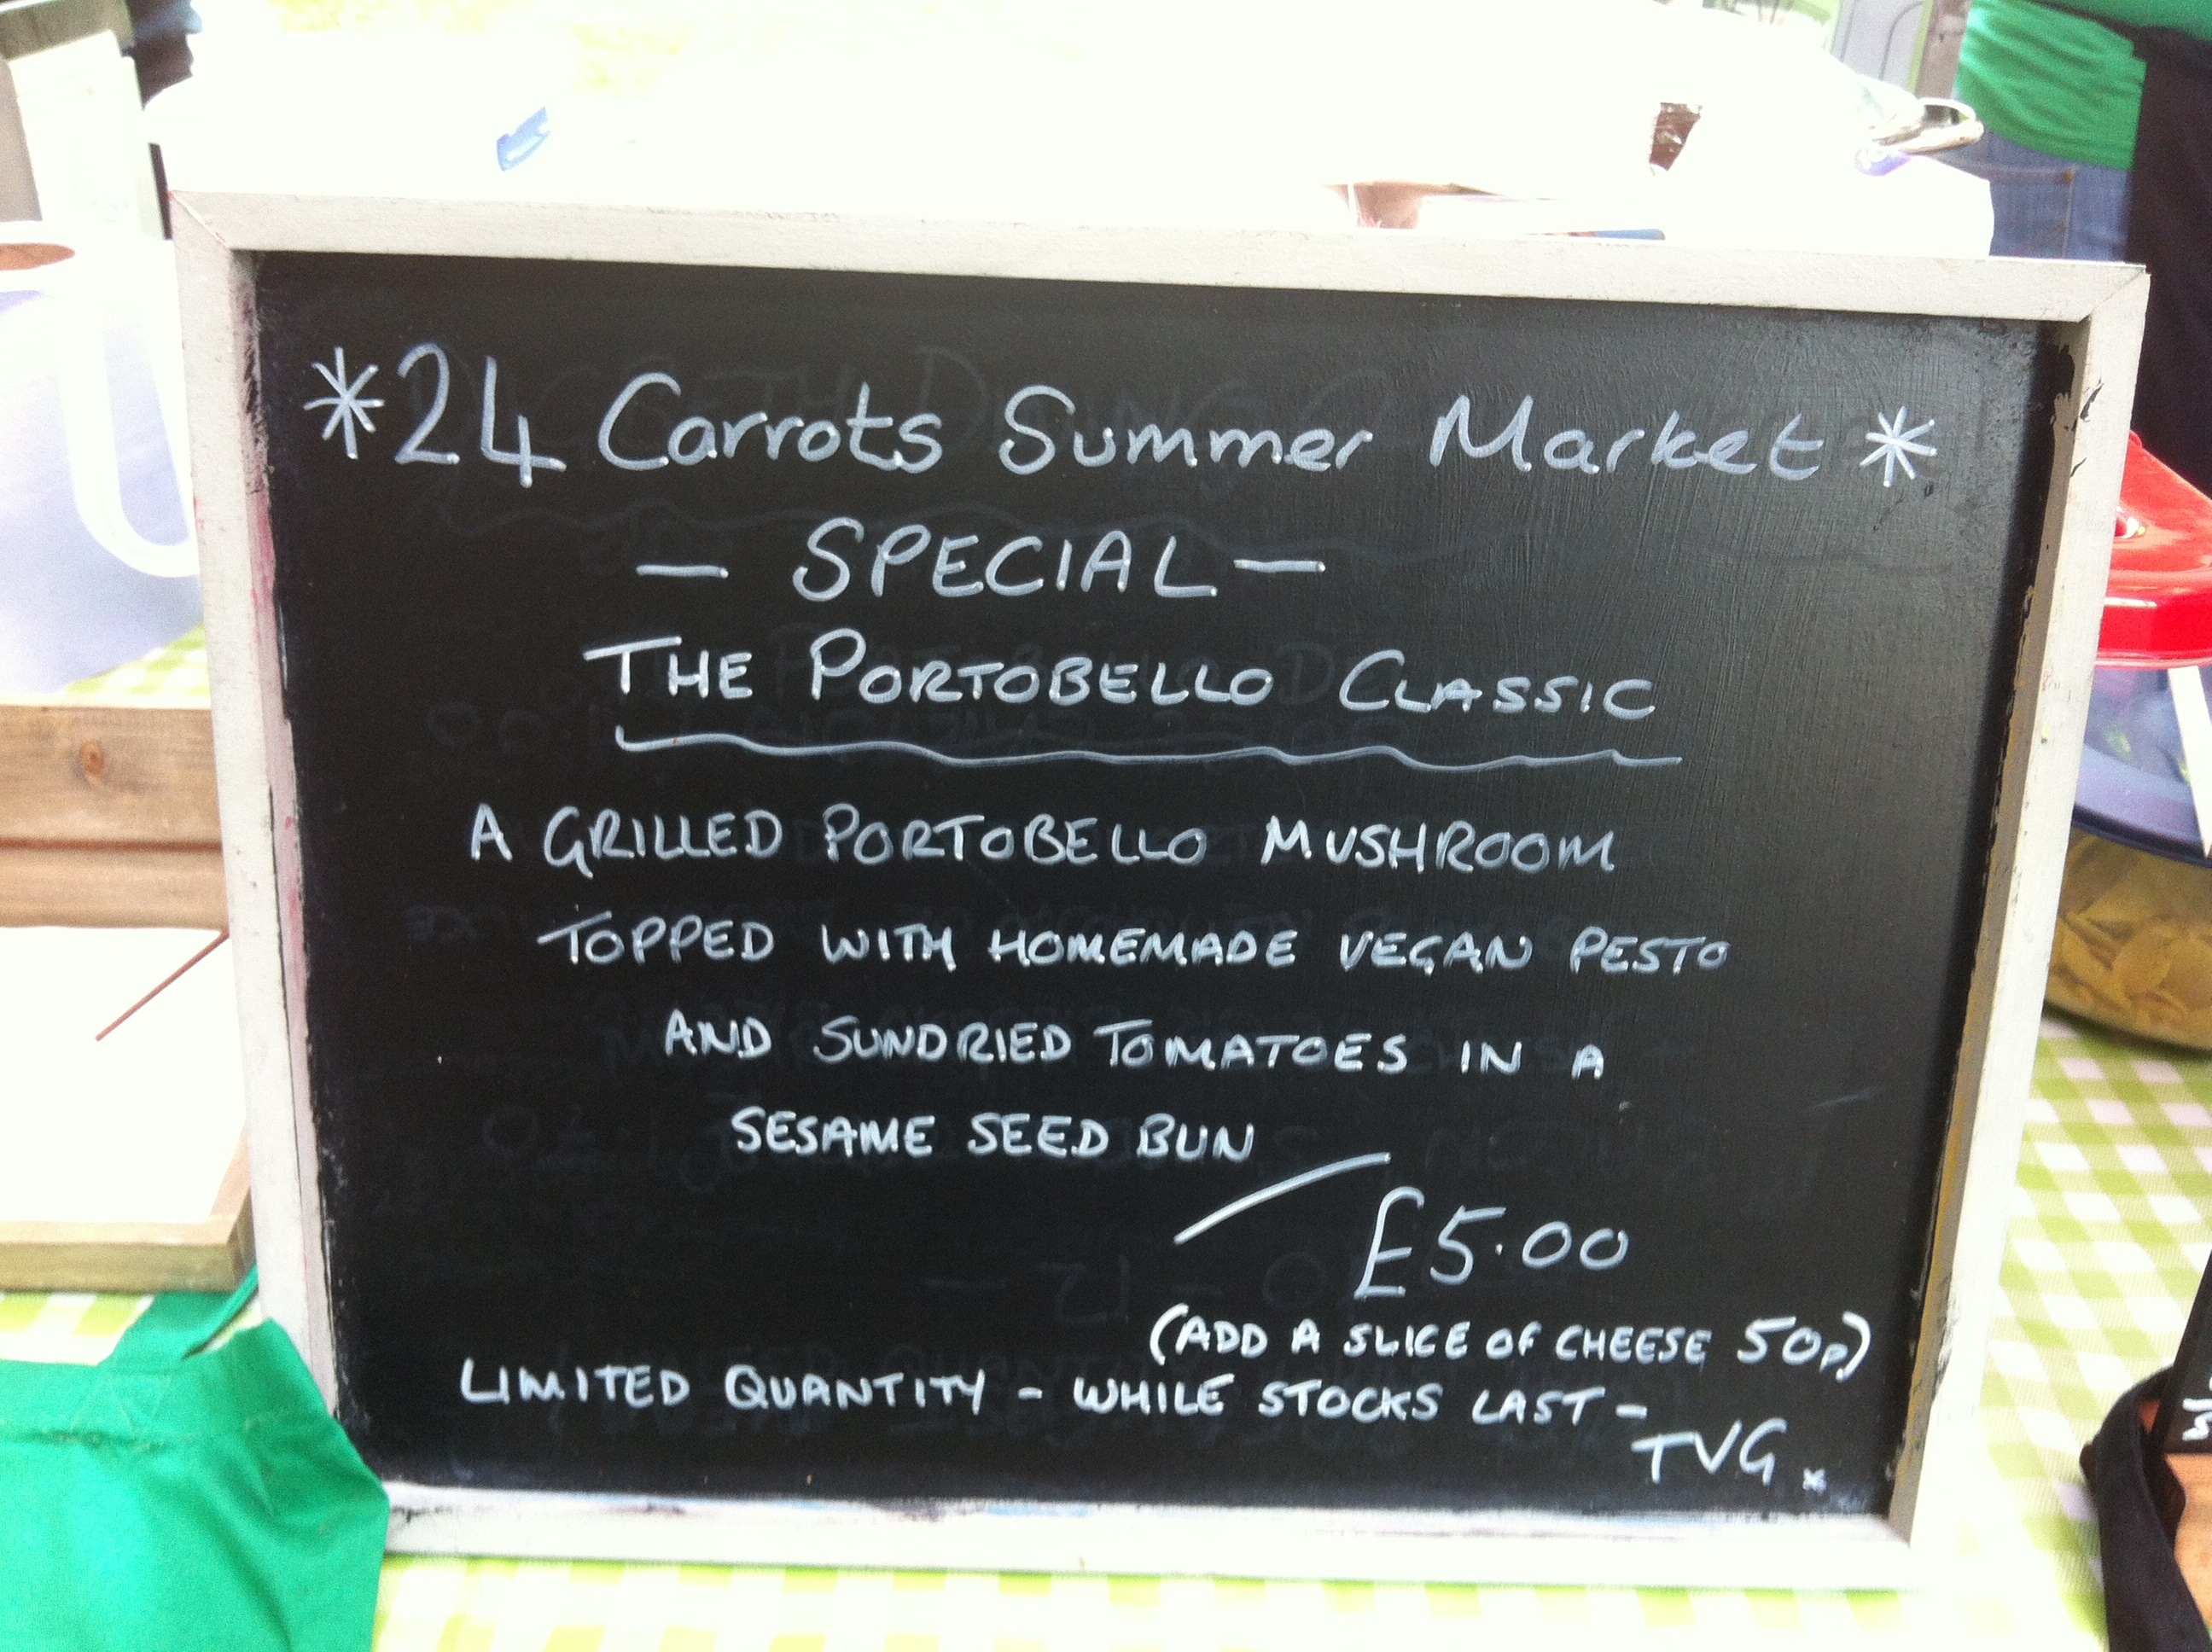 *24 Carrots Summer Market*
— SPECIAL —
THE PORTOBELLO CLASSIC
A GRILLED PORTOBELLO MUSHROOM
TOPPED WITH HOMEMADE VEGAN PESTO
AND SUNDRIED TOMATOES IN A
SESAME SEED BUN
£5.00
(ADD A SLICE OF CHEESE 50p)
LIMITED QUANTITY - WHILE STOCKS LAST -
TVG. x